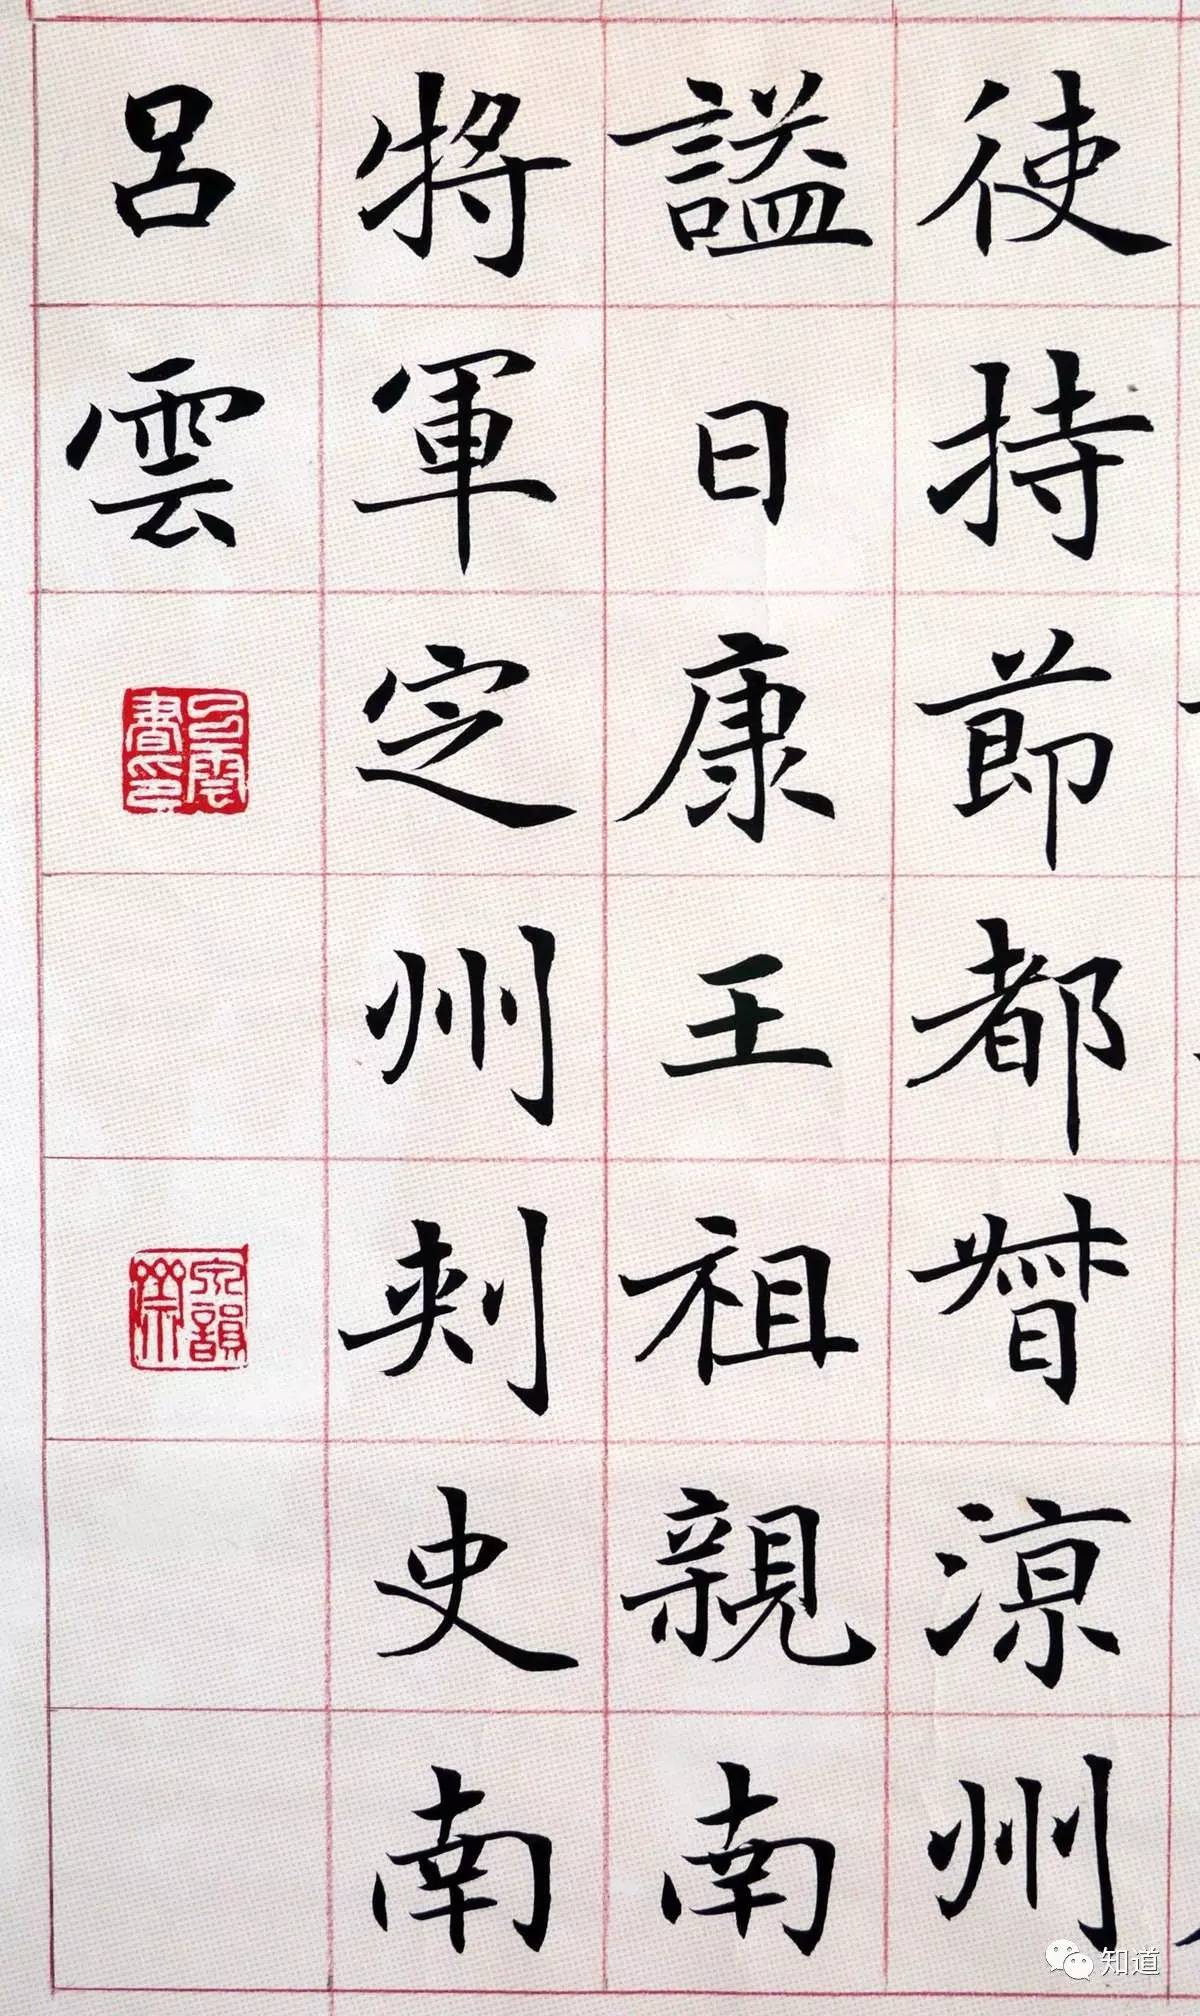 使持節都督涼州
謚曰康王祖親南
將軍定州刺史南
呂雲
呂雲書印
知道